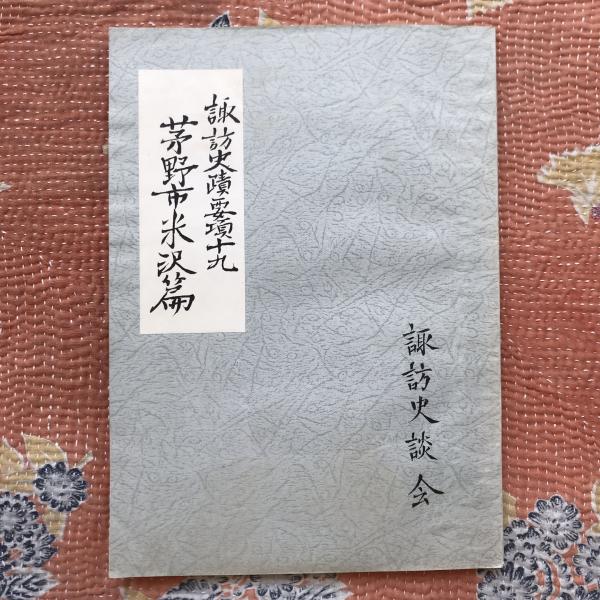 諏訪史蹟要項十九
茅野市米沢篇
諏訪史談会